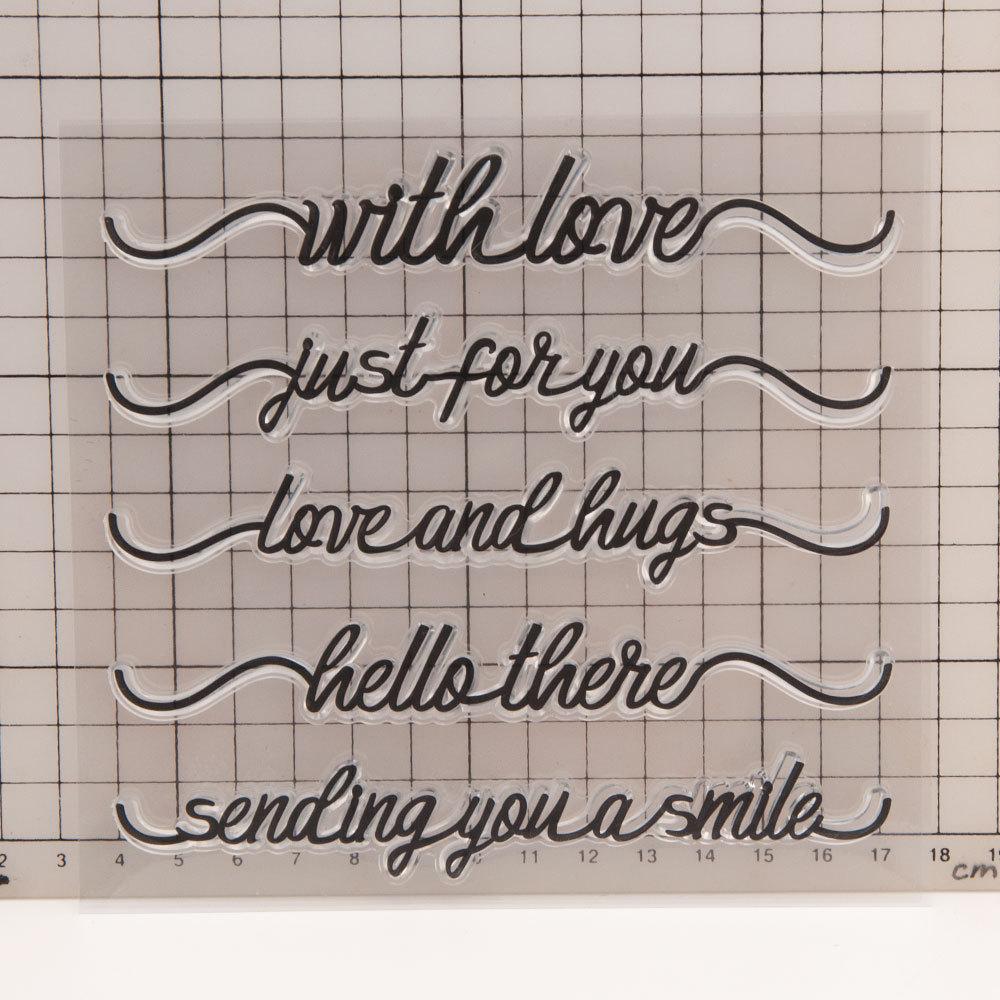 with love
just for you
love and hugs
hello there
sending you a smile
2 3 4 5 6 7 8 9 11 12 13 14 15 16 17 18 19
cm